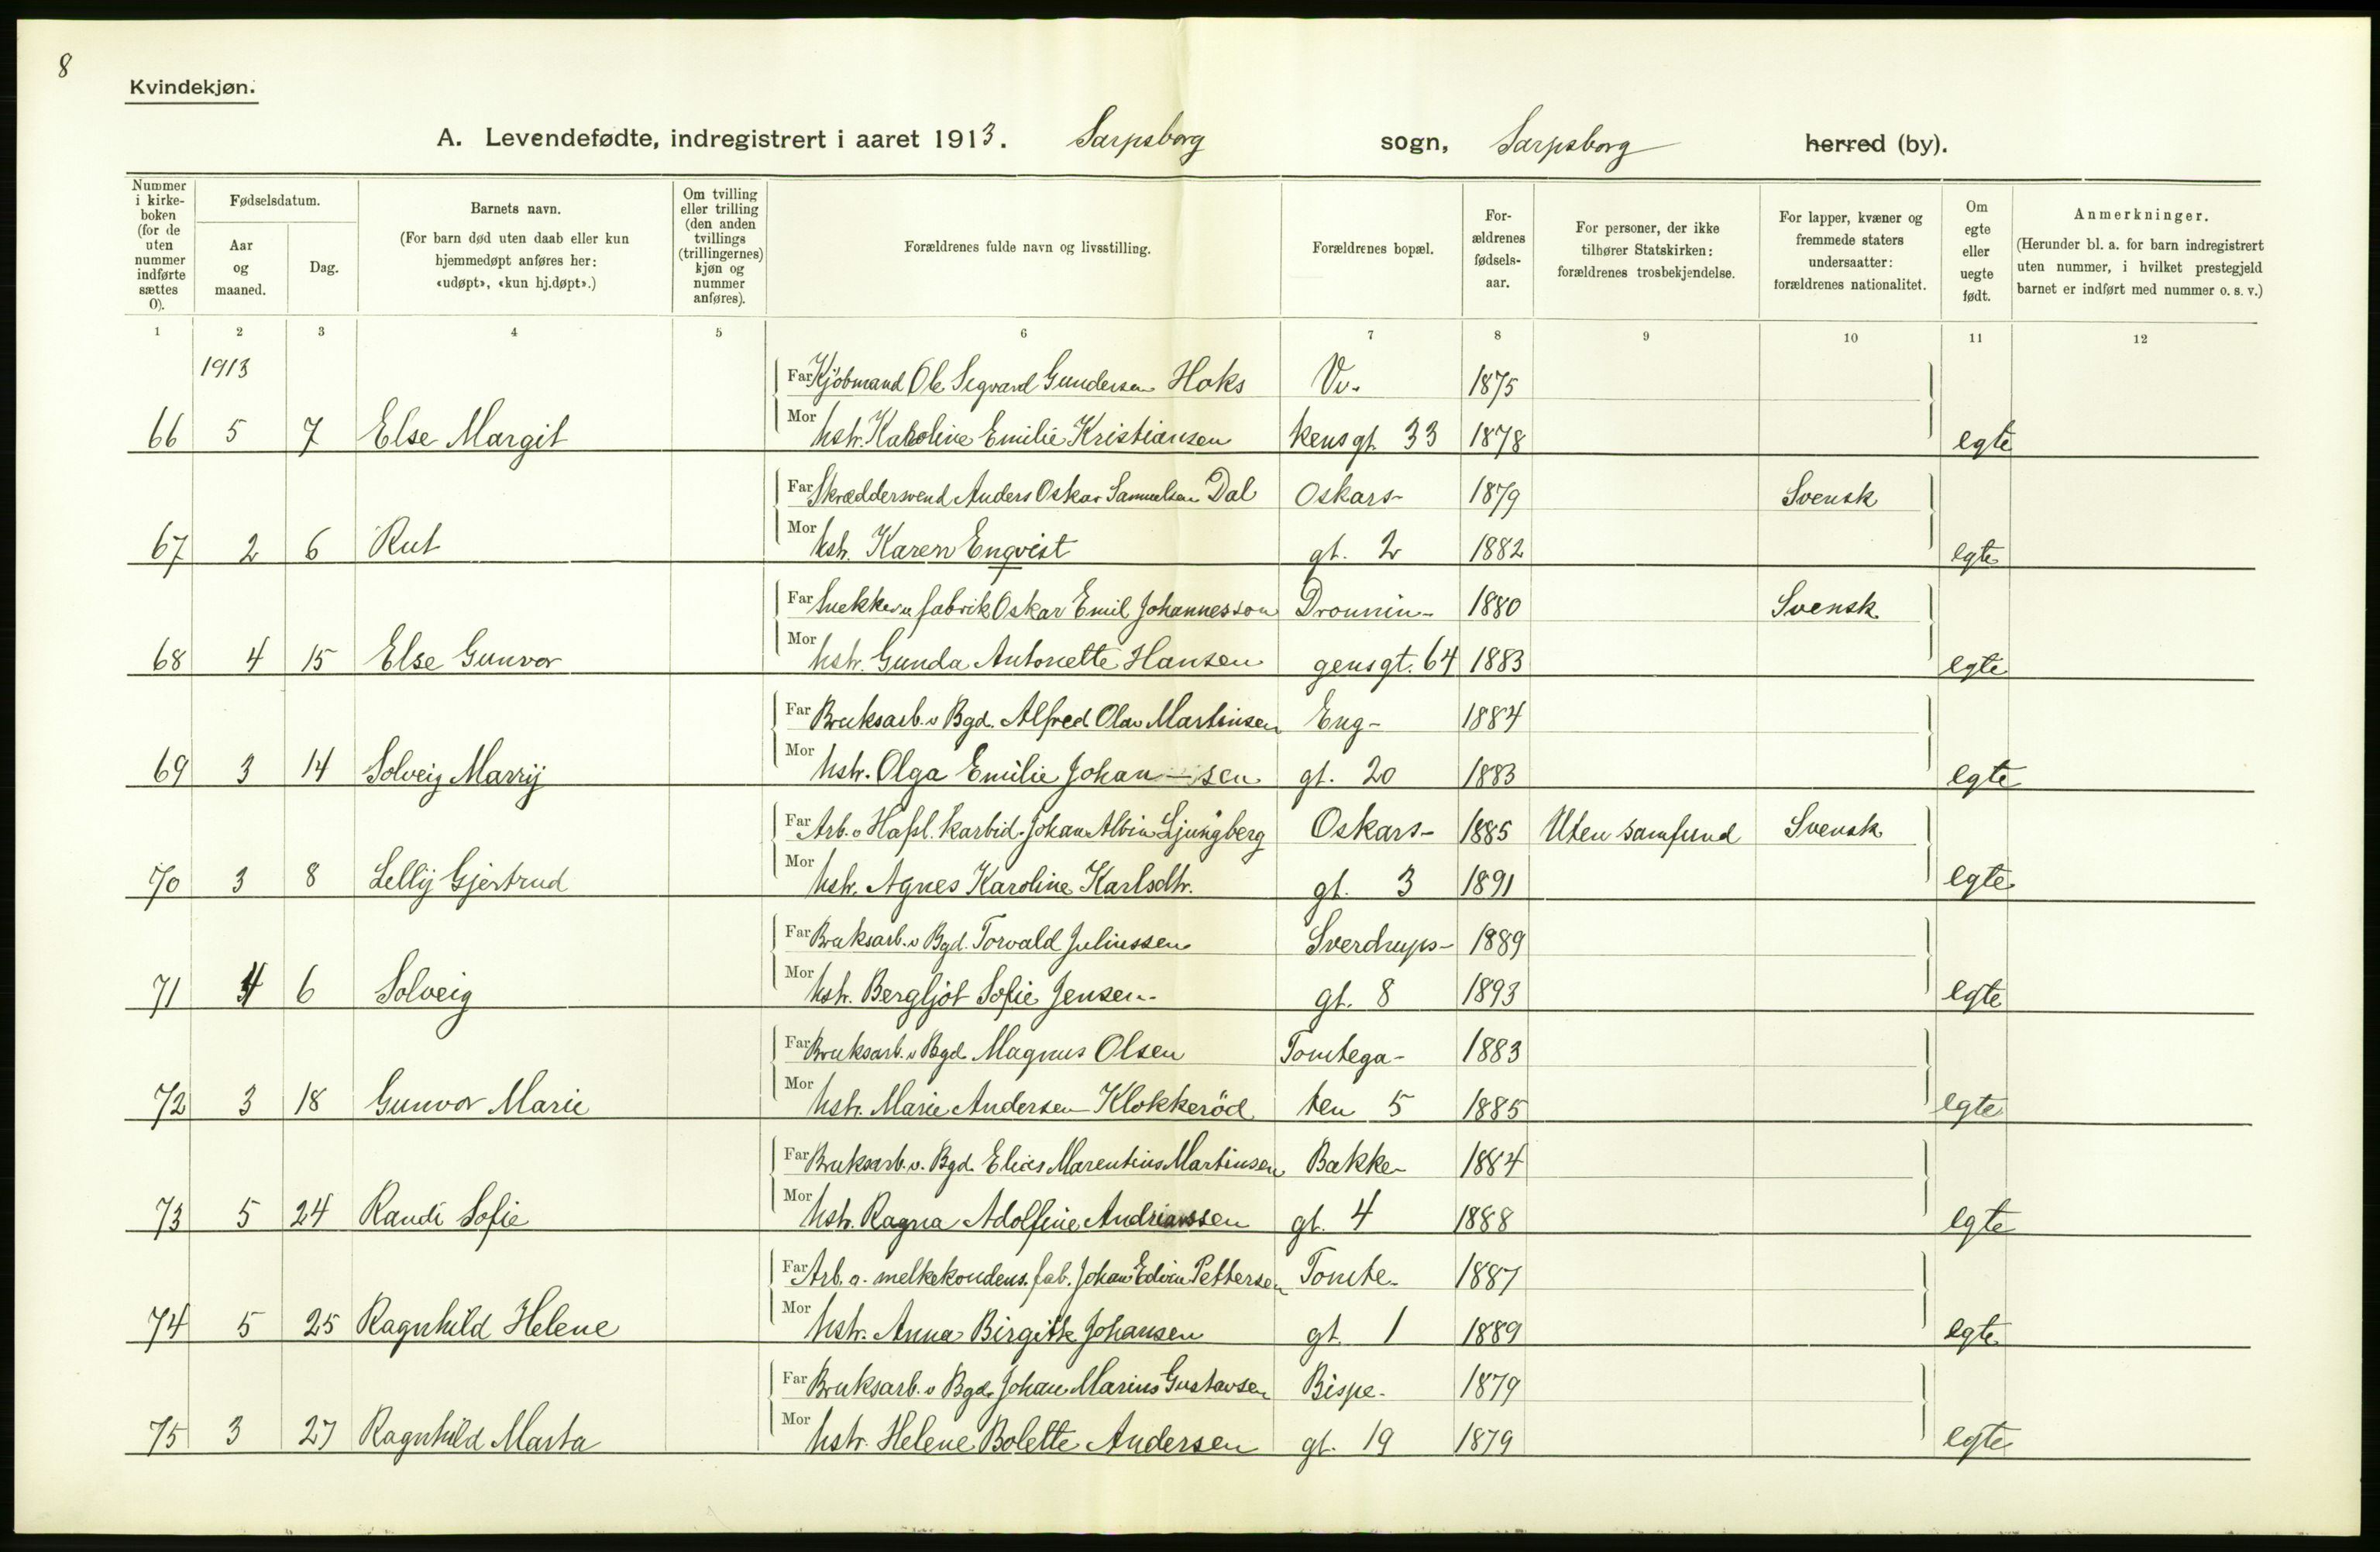 8
Kvindekjøn.
A. Levendefødte, indregistrert i aaret 1913. Sarpsborg sogn, Sarpsborg herred (by).
Nummer i kirke- boken (for de uten nummer indførte sættes 0).
Fødselsdatum.
Aar og maaned.
Dag.
Barnets navn. (For barn død uten daab eller kun hjemmedøpt anføres her: «udøpt», «kun hj.døpt».)
Om tvilling eller trilling (den anden tvillings (trillingernes) kjøn og nummer anføres).
Forældrenes fulde navn og livsstilling.
Forældrenes bopæl.
For- ældrenes fødsels- aar.
For personer, der ikke tilhører Statskirken: forældrenes trosbekjendelse.
For lapper, kvæner og fremmede staters undersaatter: forældrenes nationalitet.
Om egte eller uegte født.
Anmerkninger. (Herunder bl. a. for barn indregistrert uten nummer, i hvilket prestegjeld barnet er indført med nummer o. s. v.)
1 2 3 4 5 6 7 8 9 10 11 12
1913
Far Kjöbmand Ole Sigvard Gundersen Hoks 1875
66 5 7 Else Margit Mor hstr. Karoline Emilie Kristiansen kensgt. 33 1878 egte
Far Skræddersvend Anders Oskar Samuelsen Dal Oskars- 1879 Svensk
67 2 6 Rut Mor hstr. Karen Enqvist gt. 2 1882 egte
Far Snekker v fabrik Oskar Emil Johannesson Dronnin- 1880 Svensk
68 4 15 Else Gunvor Mor hstr. Gunda Antonette Hansen gensgt. 64 1883 egte
Far Bruksarb. v Bgd. Alfred Olav Martinsen Eng- 1884
69 3 14 Solveig Marrij Mor hstr. Olga Emilie Johan-sen gt. 20 1883 egte
Far Arb. v Hafsl. Karbid. Johan Albin Ljungberg Oskars- 1885 Uten samfund Svensk
70 3 8 Lellij Gjertrud Mor hstr. Agnes Karoline Karlsdtr. gt. 3 1891 egte
Far Bruksarb. v Bgd. Torvald Juliussen Sverdrups- 1889
71 4 6 Solveig Mor hstr. Bergljot Sofie Jensen gt. 8 1893 egte
Far Bruksarb. v Bgd. Magnus Olsen Tomtega- 1883
72 3 18 Gunvor Marie Mor hstr. Marie Andersen Klokkeröd ten 5 1885 egte
Far Bruksarb. v. Bgd. Elias Marentius Martinsen Bakke- 1884
73 5 24 Randi Sofie Mor hstr. Ragna Adolfine Andreassen gt. 4 1888 egte
Far Arb. v. melkekondens. fab. Johan Edvin Pettersen Tomte- 1887
74 5 25 Ragnhild Helene Mor hstr. Anna Birgitte Johansen gt. 1 1889 egte
Far Bruksarb. v Bgd. Johan Marius Gustavsen Bispe- 1879
75 3 27 Ragnhild Marta Mor hstr. Helene Bolette Andersen gt. 19 1879 egte